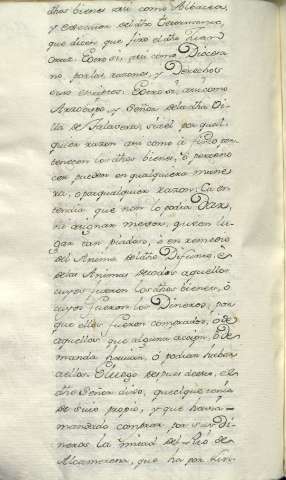 dhos bienes asi como Albacea,
y executor del dho testamento,
que dicen que fizo el dho Juan
Otrosi, asi como Diocesa
no, por las razones, y Derechos
suso escriptos. Otrosi, asi como
Arzobispo, y Señor de la dha Vi
lla de Talavera, si él por qual
quier razon asi como à Señor per
tenecen los dhos bienes, ò pertene
cer pueden en qualquiera mane
ra, o por qualquier razon. Ca en
tendia que non lo podia Dar,
ni asignar mexor, qui en lu
gar tan piadoso, è en remedio
del Anima del dho Difunto, è
de las Animas de todos aquellos
cuyos fueron los dhos bienes, ò
cuyos fueron los Dineros, por
que ellos fueron comprados, ò de
aquellos que alguna accion, ò de
manda havian, ò podian haber
a ellos. E luego despues desto, el
dho Señor dixo, que el que tenia
de suio propio, y que havia
mandado comprar por sus Di
neros la mitad del Rio de
que ha por lin-